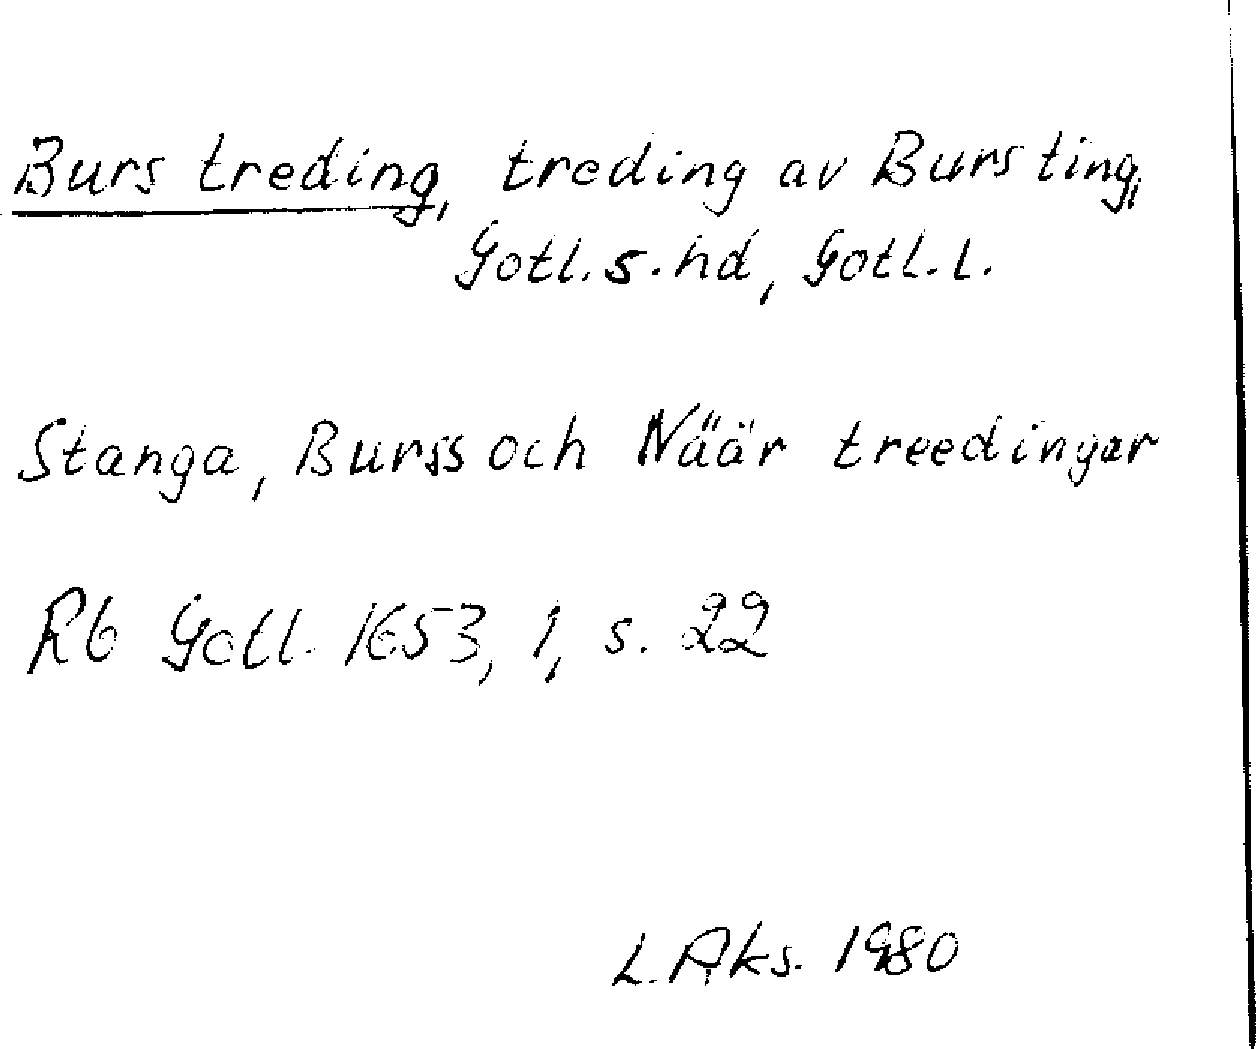 Burs treding, treding av Burs ting,
Gotl. s. hd, Gotl. l.
Stanga, Burss och Näär treedingar
Rb Gotl. 1653, 1, s. 22
L. Aks. 1980